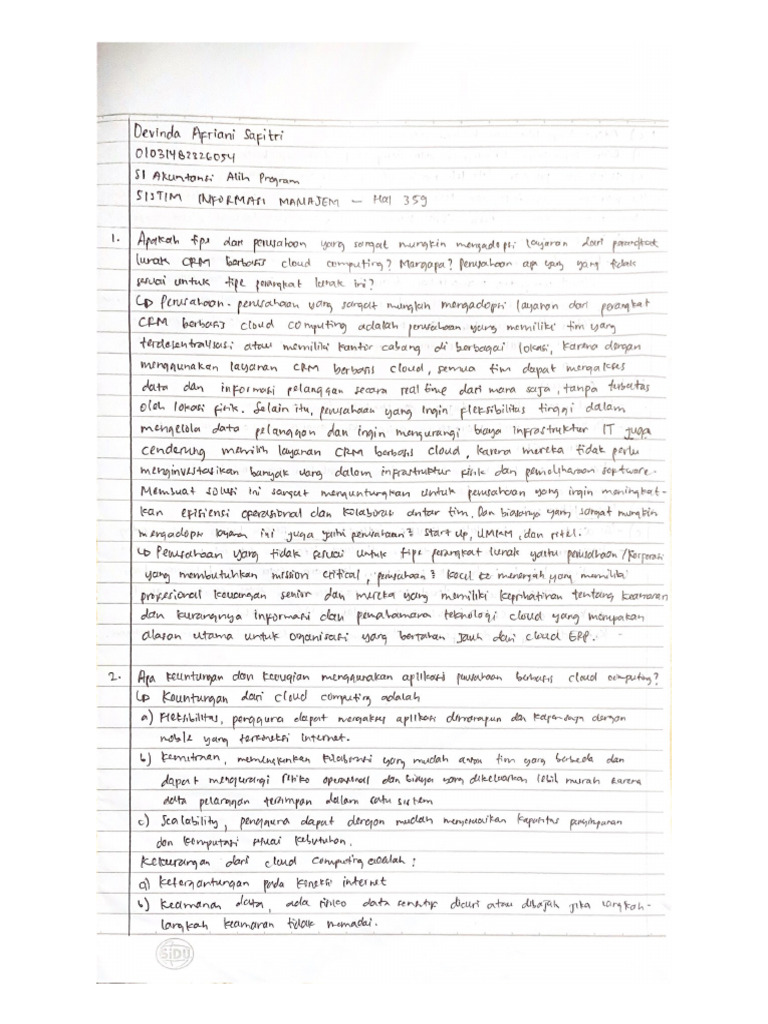 Devinda Afriani Safitri
01031482326054
S1 Akuntansi Alih Program
SISTIM INFORMASI MANAJEM - Hal 359
1. Apakah tipe dari perusahaan yang sangat mungkin mengadopsi layanan dari perangkat
lunak CRM berbasis cloud computing? Mengapa? Perusahaan apa yang yang tidak
sesuai untuk tipe perangkat lunak ini?
↳ Perusahaan-perusahaan yang sangat mungkin mengadopsi layanan dari perangkat
CRM berbasis cloud computing adalah perusahaan yang memiliki tim yang
terdesentralisasi atau memiliki kantor cabang di berbagai lokasi, karena dengan
menggunakan layanan CRM berbasis cloud, semua tim dapat mengakses
data dan informasi pelanggan secara real time dari mana saja, tanpa terbatas
oleh lokasi fisik. Selain itu, perusahaan yang ingin fleksibilitas tinggi dalam
mengelola data pelanggan dan ingin mengurangi biaya infrastruktur IT juga
cenderung memilih layanan CRM berbasis cloud, karena mereka tidak perlu
menginvestasikan banyak uang dalam infrastruktur fisik dan pemeliharaan software.
Membuat solusi ini sangat menguntungkan untuk perusahaan yang ingin meningkat-
kan efisiensi operasional dan kolaborasi antar tim. Dan biasanya yang sangat mungkin
mengadopsi layanan ini juga yaitu perusahaan² start up, UMKM, dan retail.
↳ Perusahaan yang tidak sesuai untuk tipe perangkat lunak yaitu perusahaan/korporasi
yang membutuhkan mission critical, perusahaan² kecil ke menengah yang memiliki
profesional keuangan senior dan mereka yang memiliki keprihatinan tentang keamanan
dan kurangnya informasi dan pemahaman teknologi cloud yang merupakan
alasan utama untuk organisasi yang bertahan jauh dari cloud ERP.
2. Apa keuntungan dan kerugian menggunakan aplikasi perusahaan berbasis cloud computing?
↳ Keuntungan dari cloud computing adalah
a) Fleksibilitas, pengguna dapat mengakses aplikasi dimanapun dan kapanpun dengan
mobile yang terkoneksi internet.
b) Kemitraan, memungkinkan kolaborasi yang mudah antar tim yang berbeda dan
dapat mengurangi risiko operasional dan biaya yang dikeluarkan lebih murah karena
data pelanggan tersimpan dalam satu sistem
c) Scalability, pengguna dapat dengan mudah menyesuaikan kapasitas penyimpanan
dan komputasi sesuai kebutuhan.
Kekurangan dari cloud computing adalah:
a) Ketergantungan pada koneksi internet
b) Keamanan data, ada risiko data sensitif dicuri atau dibajak jika langkah-
langkah keamanan tidak memadai.
SIDU